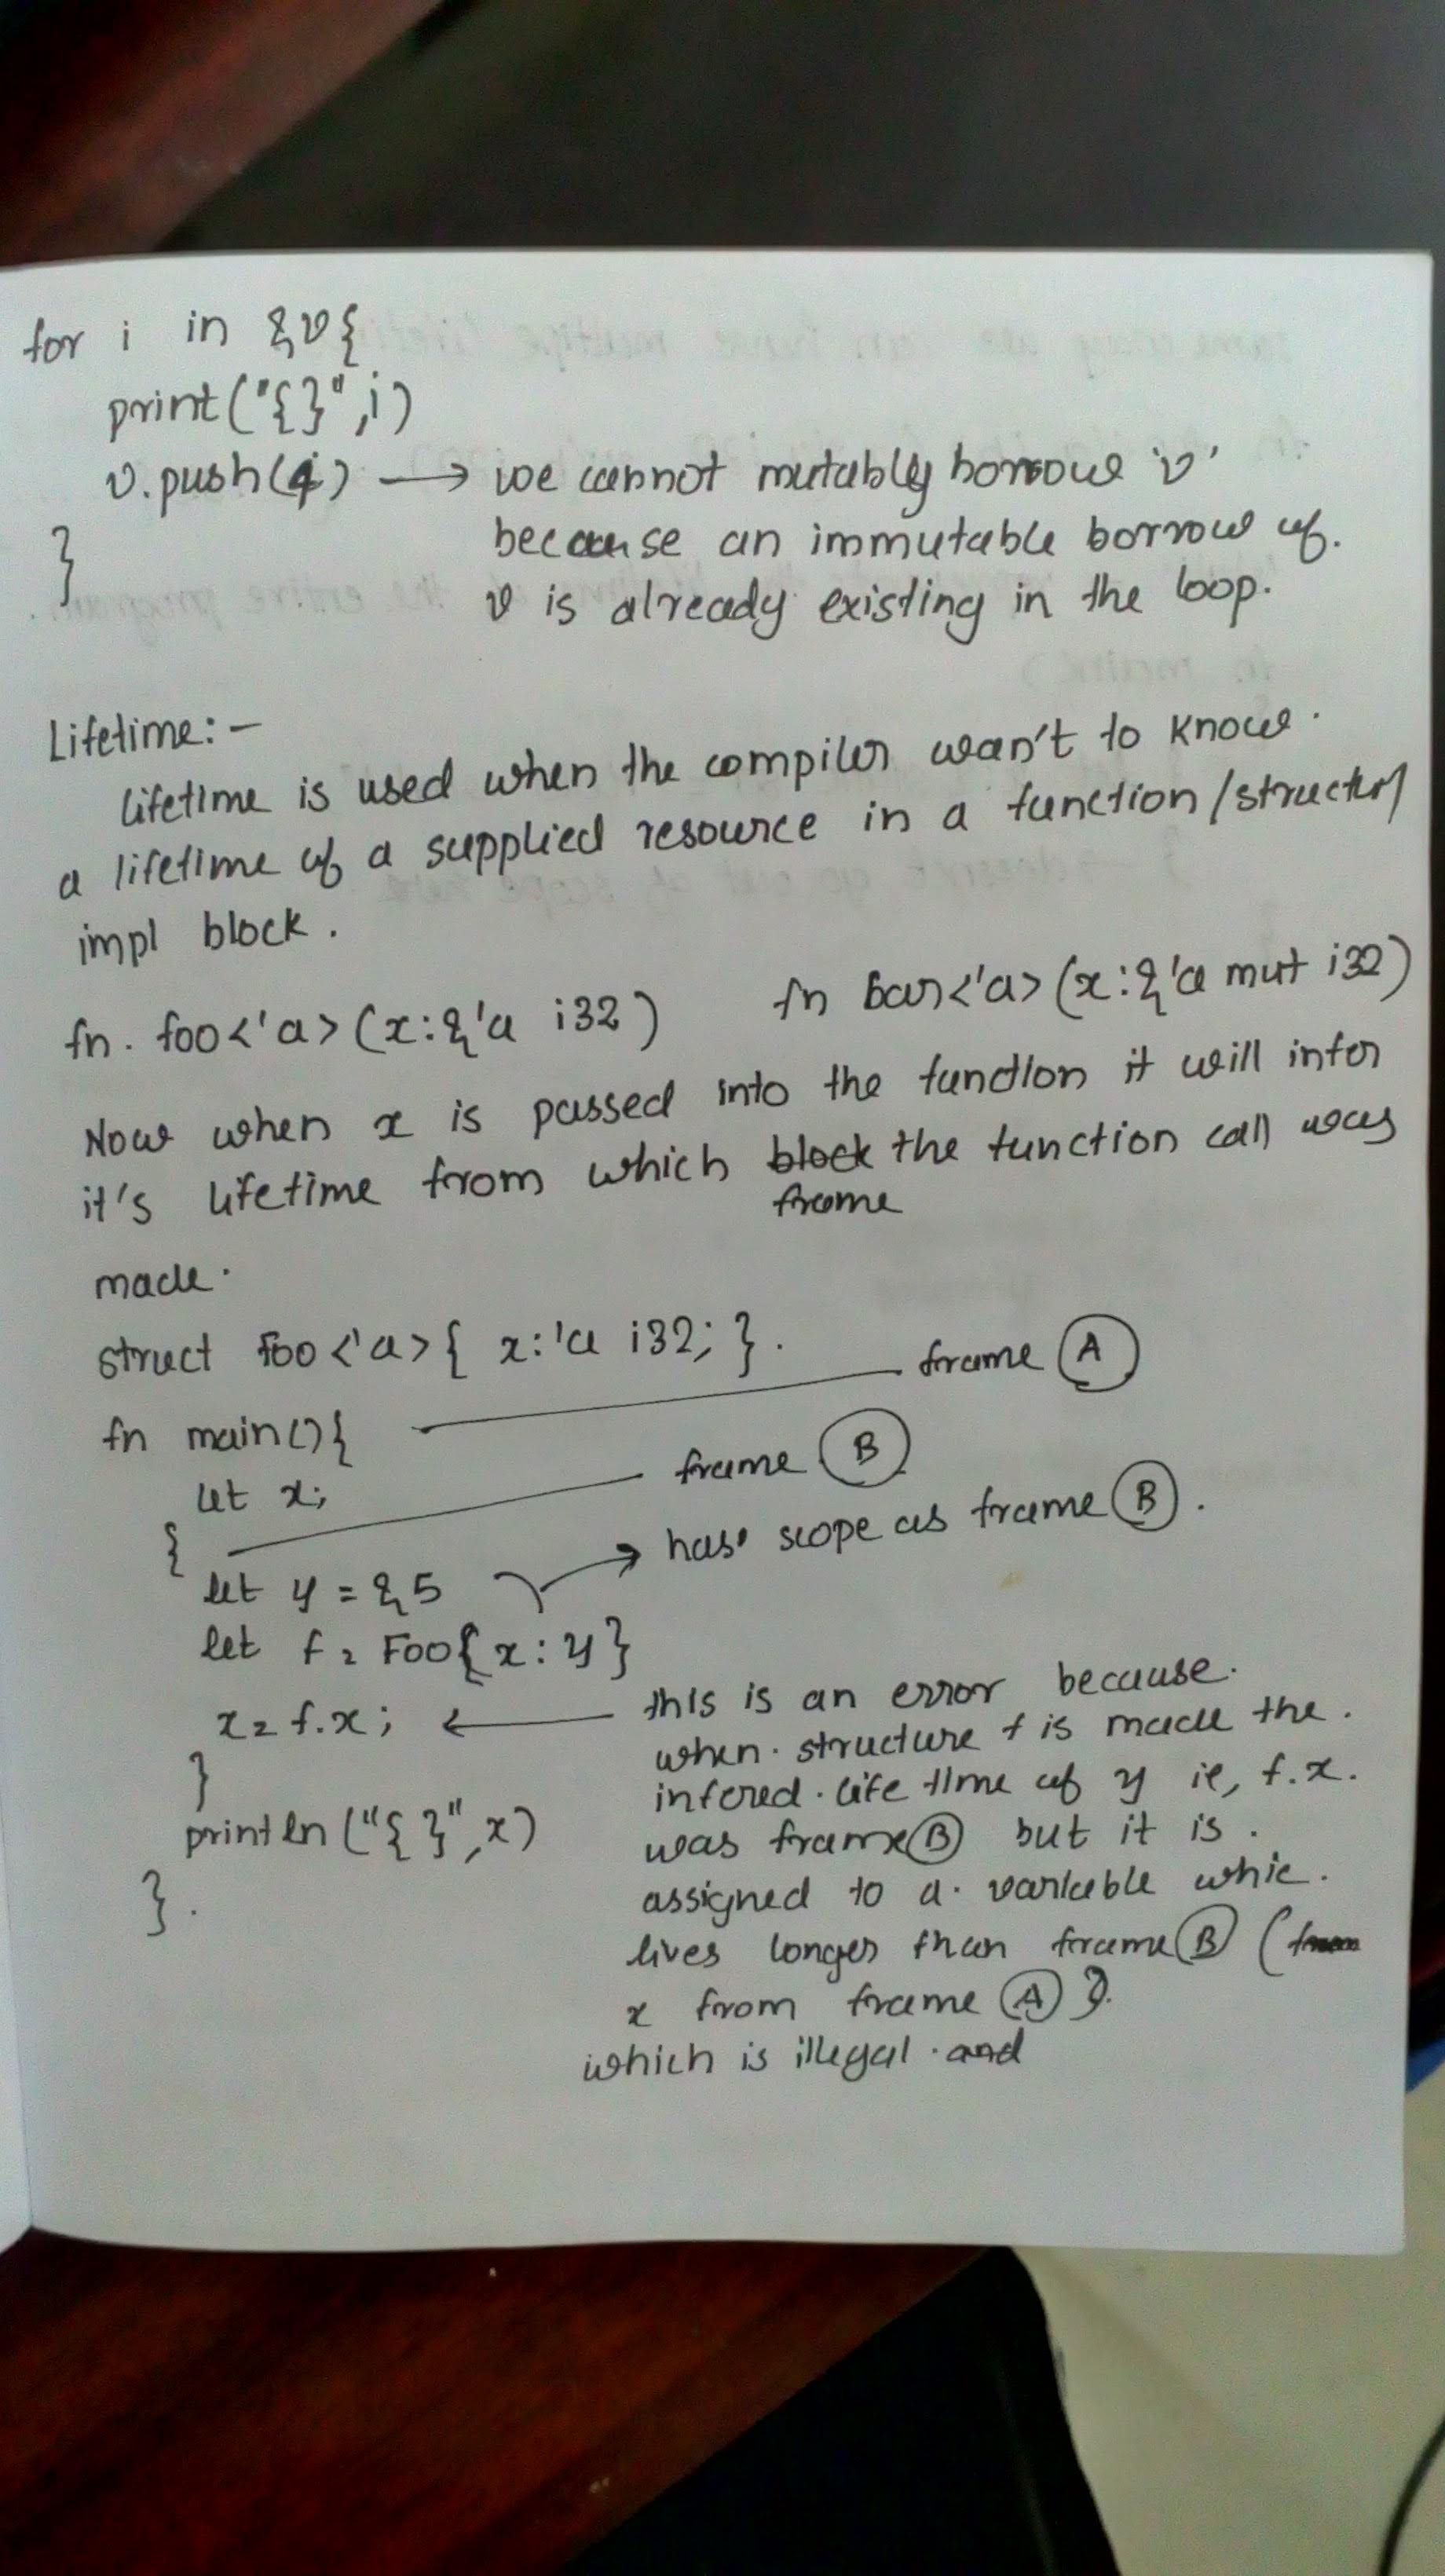 for i in &v{
print("{}",i)
v.push(4) → we cannot mutably borrow 'v'
because an immutable borrow of.
} v is already existing in the loop.
Lifetime:-
lifetime is used when the compiler wan't to know.
a lifetime of a supplied resource in a function/structur/
impl block.
fn. foo<'a>(x:&'a i32) fn bar<'a>(x:&'a mut i32)
Now when x is passed into the function it will infer
it's lifetime from which block the function call was
frame
made.
struct Foo<'a>{ x:'a i32; }.
frame A
fn main(){
frame B
let x;
{
has scope as frame B.
let y = &5
let f = Foo{x:y}
x = f.x; ← this is an error because.
when. structure f is made the.
} infered. life time of y ie, f.x.
println("{}",x) was frame B but it is.
}. assigned to a. variable whic.
lives longer than frame B (
x from frame A).
which is illegal. and